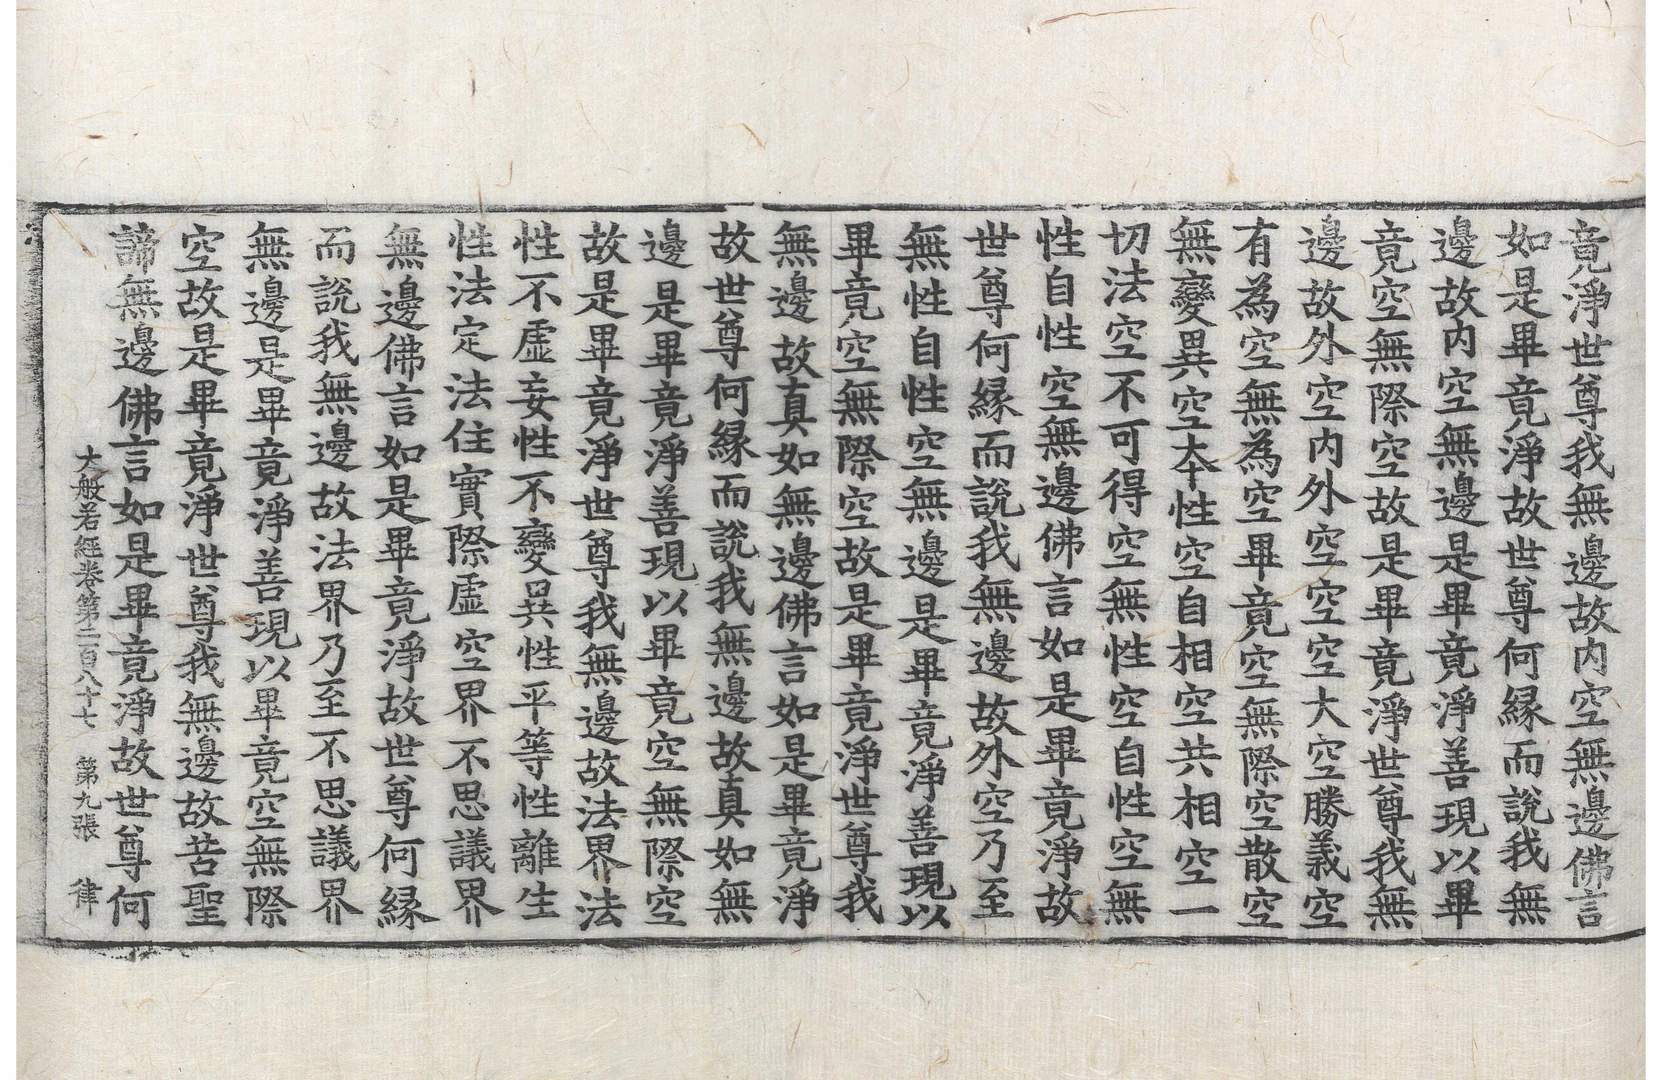 竟淨世尊我無邊故内空無邊佛言
如是畢竟淨故世尊何縁而說我無
邊故内空無邊是畢竟淨善現以畢
竟空無際空故是畢竟淨世尊我無
邊故外空内外空空空大空勝義空
有為空無為空畢竟空無際空散空
無變異空本性空自相空共相空一
切法空不可得空無性空自性空無
性自性空無邊佛言如是畢竟淨故
世尊何縁而說我無邊故外空乃至
無性自性空無邊是畢竟淨善現以
畢竟空無際空故是畢竟淨世尊我
無邊故真如無邊佛言如是畢竟淨
故世尊何縁而說我無邊故真如無
邊是畢竟淨善現以畢竟空無際空
故是畢竟淨世尊我無邊故法界法
性不虛妄性不變異性平等性離生
性法定法住實際虛空界不思議界
無邊佛言如是畢竟淨故世尊何縁
而說我無邊故法界乃至不思議界
無邊是畢竟淨善現以畢竟空無際
空故是畢竟淨世尊我無邊故苦聖
諦無邊佛言如是畢竟淨故世尊何
大般若經卷第二百八十七 第九張 律